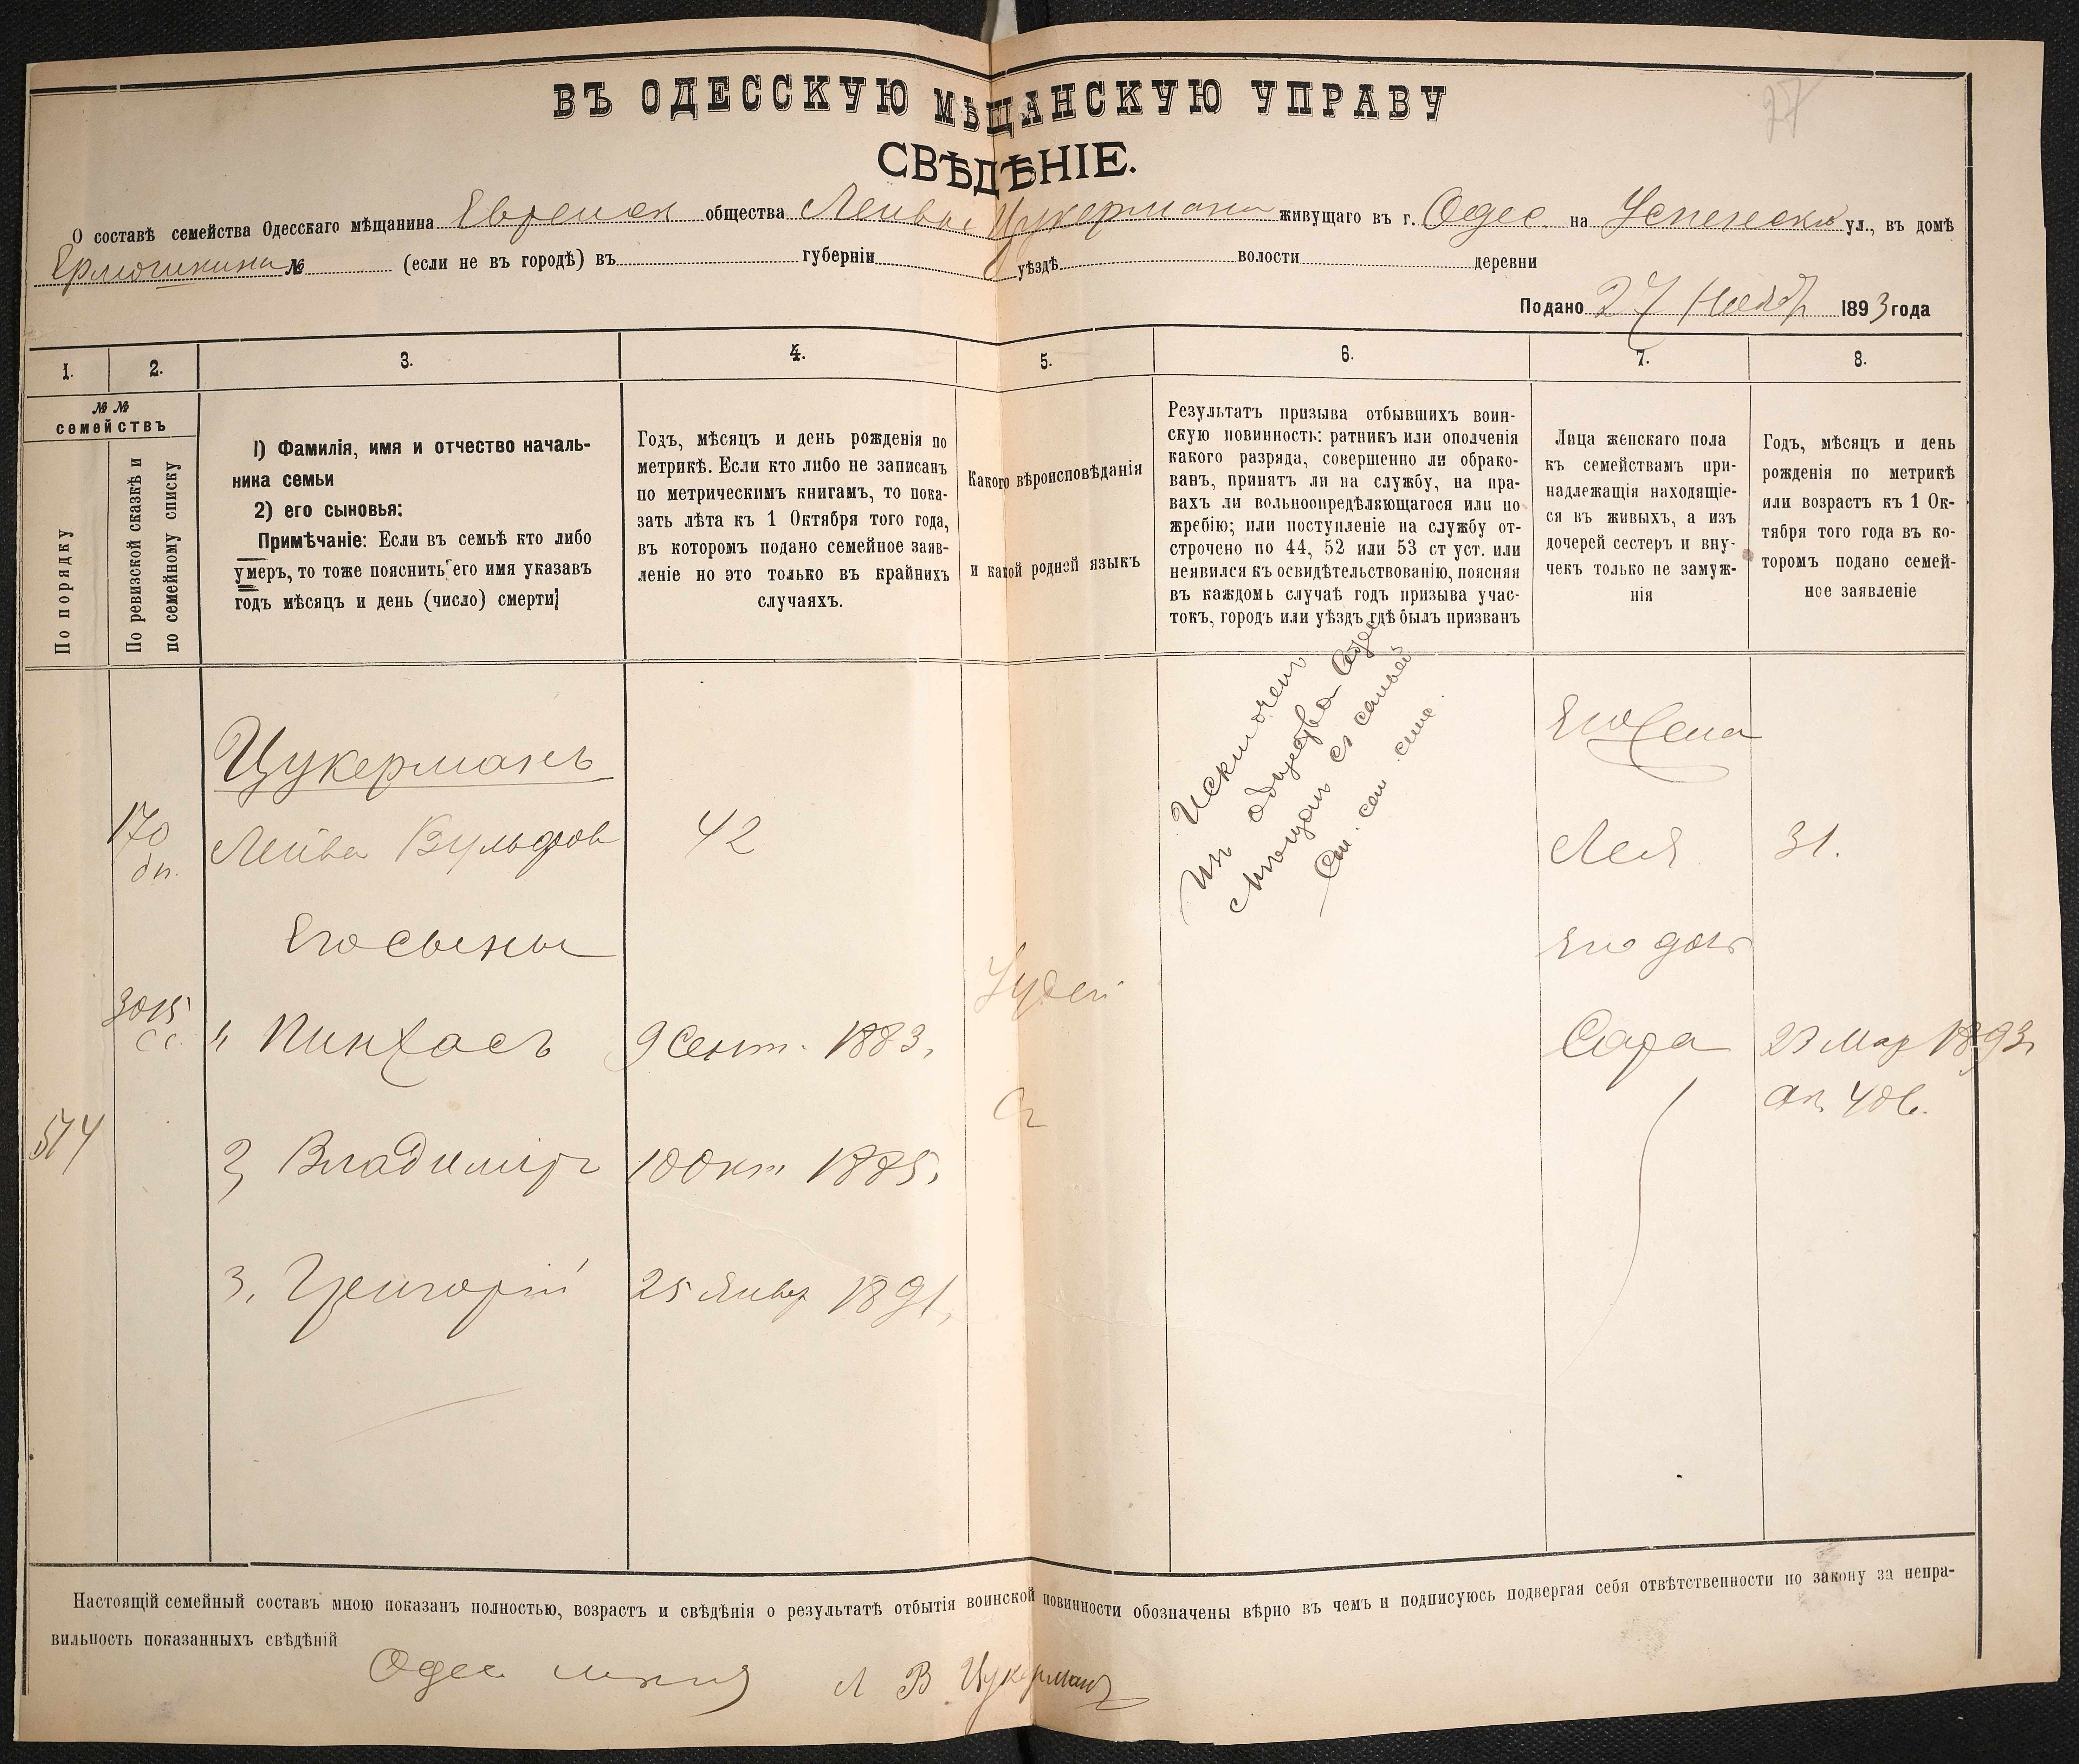 27
ВЪ ОДЕССКУЮ МѢЩАНСКУЮ УПРАВУ
СВѢДѢНІЕ.
О составѣ семейства Одесскаго мѣщанина Евреиск общества Лейвы Цукермана живущаго въ г. Одес. на Успенско ул., въ домѣ
№ (если не въ городѣ) въ губерніи уѣздѣ волости деревни
Подано 27 Ноябр 1893 года
1. 2. 3. 4. 5. 6. 7. 8.
№№ семействъ
По порядку
По ревизской сказкѣ и
по семейному списку
1) Фамилія, имя и отчество началь-
ника семьи
2) его сыновья:
Примѣчаніе: Если въ семьѣ кто либо
умеръ, то тоже пояснить его имя указавъ
годъ мѣсяцъ и день (число) смерти;
Годъ, мѣсяцъ и день рожденія по
метрикѣ. Если кто либо не записанъ
по метрическимъ книгамъ, то пока-
зать лѣта къ 1 Октября того года,
въ которомъ подано семейное заяв-
леніе но это только въ крайнихъ
случаяхъ.
Какого вѣроисповѣданія
и какой родной языкъ
Результатъ призыва отбывшихъ воин-
скую повинность: ратникъ или ополченія
какого разряда, совершенно ли обрако-
ванъ, принятъ ли на службу, на пра-
вахъ ли вольноопредѣляющагося или по
жребію; или поступленіе на службу от-
строчено по 44, 52 или 53 ст уст. или
неявился къ освидѣтельствованію, поясняя
въ каждомъ случаѣ годъ призыва учас-
токъ, городъ или уѣздъ гдѣ былъ призванъ
Лица женскаго пола
къ семействамъ при-
надлежащія находящіе-
ся въ живыхъ, а изъ
дочерей сестеръ и вну-
чекъ только не замуж-
нія
Годъ, мѣсяцъ и день
рожденія по метрикѣ
или возрастъ къ 1 Ок-
тября того года въ ко-
торомъ подано семей-
ное заявленіе
Исключен
из общества Одес
мещан с семьей
См. сем. спис.
Цукерманъ
Его жена
170 Лейва Вульфов 42 Лея 31.
Его сыны Его дочь
Иудей
3015 с с.
" Пинхасъ 9 Сент. 1883. Сара 23 Мар 1893
ак 406.
574
2, Владимир 10 Окт 1885.
3, Григорій 25 Январ 1891.
Настоящій семейный составъ мною показанъ полностью, возрастъ и свѣдѣнія о результатѣ отбытія воинской повинности обозначены вѣрно въ чемъ и подписуюсь подвергая себя отвѣтственности по закону за непра-
вильность показанныхъ свѣдѣній
Одес Л В Цукерман